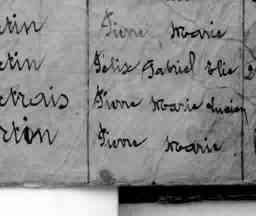 tin Pierre Marie
tin Félix Gabriel Elie
trais Pierre Marie Lucien
rtin Pierre Marie